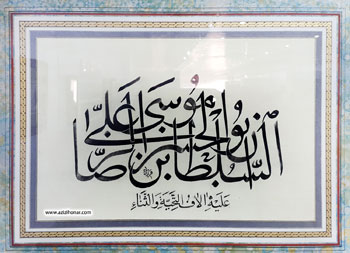 السلطان ابوالحسن علی بن موسی الرضا
علیه الاف التحیة والثناء
www.azizihonar.com